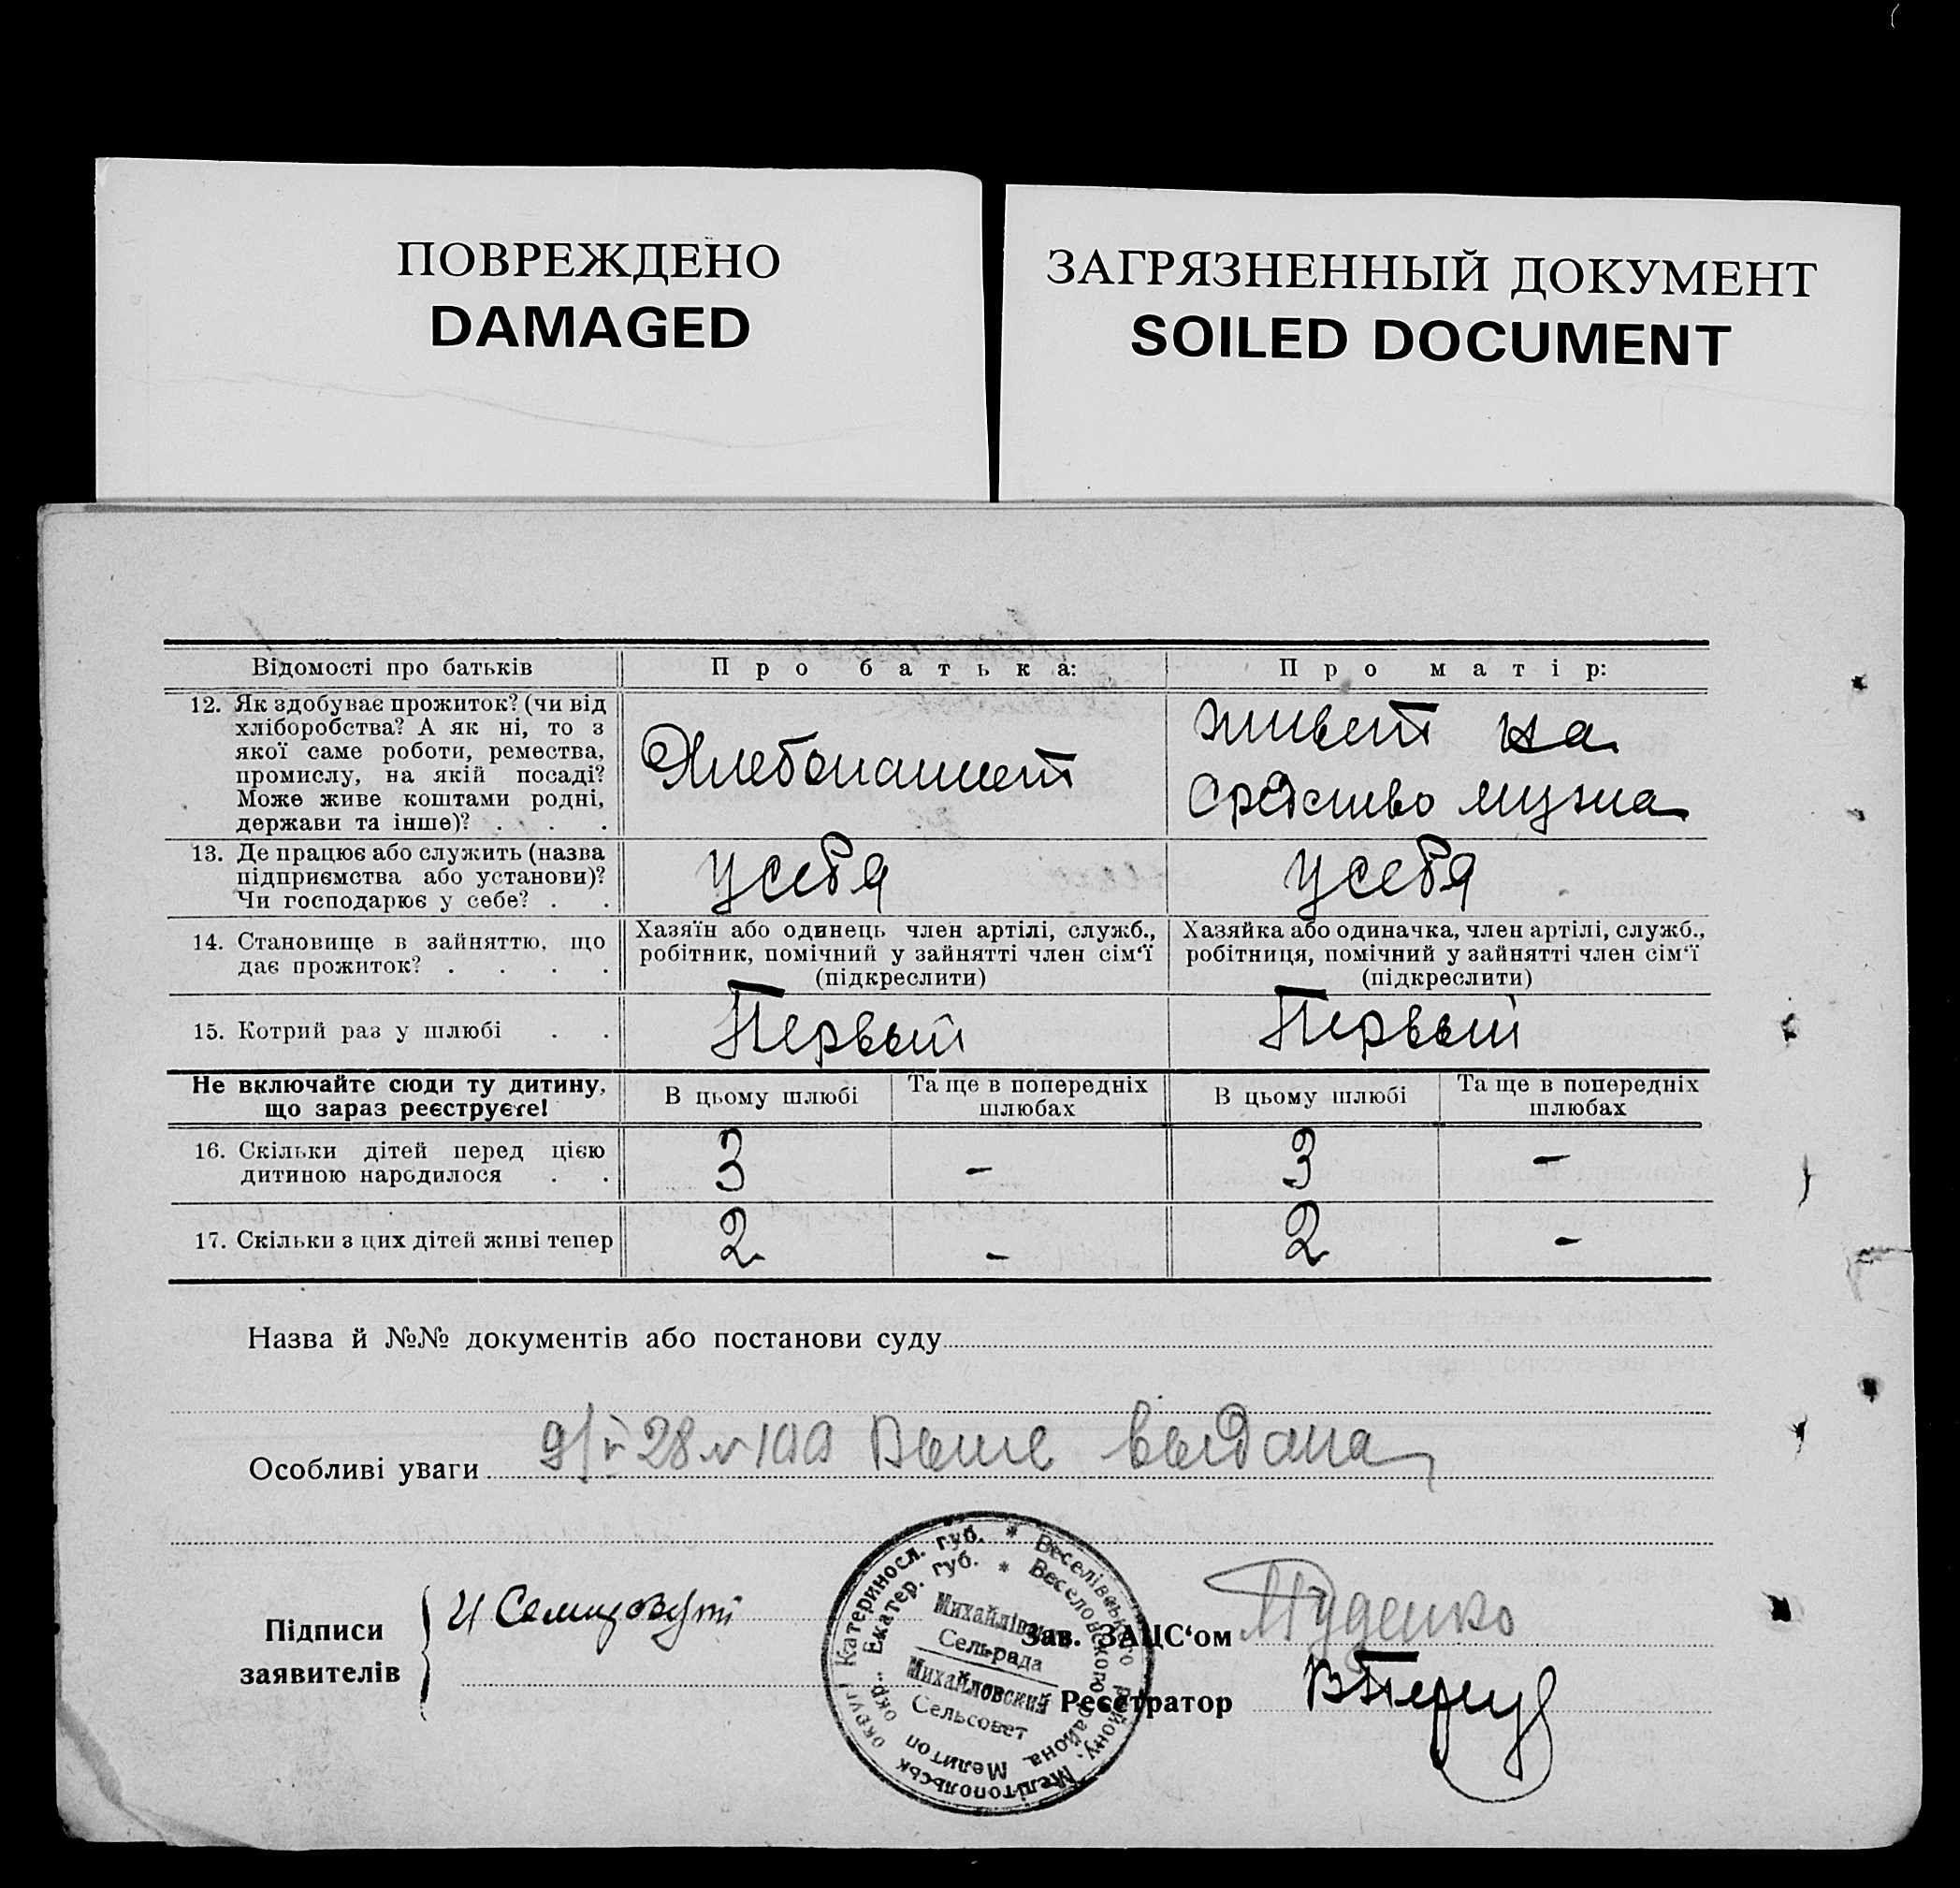 ПОВРЕЖДЕНО
DAMAGED
ЗАГРЯЗНЕННЫЙ ДОКУМЕНТ
SOILED DOCUMENT
Відомості про батьків
Про батька:
Про матір:
12. Як здобуває прожиток? (чи від
хліборобства? А як ні, то з
якої саме роботи, ремества,
промислу, на якій посаді?
Може живе коштами родні,
держави та інше)? . . .
Хлебопашест
живет на
средство мужа
13. Де працює або служить (назва
підприємства або установи)?
Чи господарює у себе? . .
у себя
у себя
14. Становище в зайняттю, що
дає прожиток? . . . .
Хазяїн або одинець член артілі, служб.,
робітник, помічний у зайнятті член сім'ї
(підкреслити)
Хазяйка або одиначка, член артілі, служб.,
робітниця, помічний у зайнятті член сім'ї
(підкреслити)
15. Котрий раз у шлюбі . .
Первый
Первый
Не включайте сюди ту дитину,
що зараз реєструєте!
В цьому шлюбі
Та ще в попередніх
шлюбах
В цьому шлюбі
Та ще в попередніх
шлюбах
16. Скільки дітей перед цією
дитиною народилося . .
3
-
3
-
17. Скільки з цих дітей живі тепер
2
-
2
-
Назва й №№ документів або постанови суду
Особливі уваги
28 выдана
Підписи
заявителів
И
Зав. ЗАЦС'ом
Реєстратор
Катериносл. губ. * Веселівського району, Мелітопольськ округ
Екатер. губ. * Веселовского района Мелитоп окр.
Сель-рада
Михайловский
Сельсовет